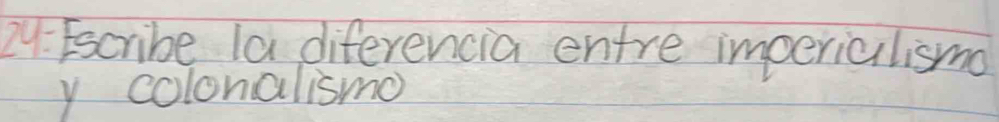 24: Escribe la diferencia entre imperialismo
y colonalismo